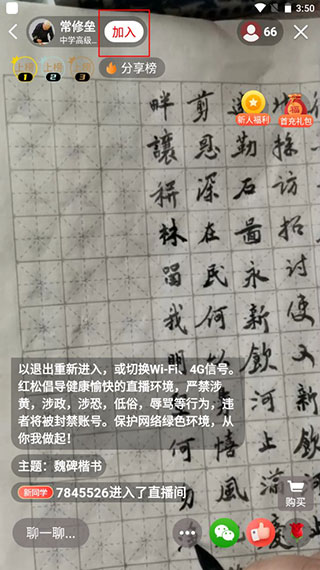 3:50
常修垒
中学高级...
加入
66
上榜 1
上榜 2
上榜 3
分享榜
新人福利
首充礼包
訪招討便又新
石
永新飲河止風
恩深在民何
畔讓
林
我明
何
以退出重新进入，或切换Wi-Fi、4G信号。
红松倡导健康愉快的直播环境，严禁涉
黄，涉政，涉恐，低俗，辱骂等行为，违
者将被封禁账号。保护网络绿色环境，从
你我做起！
主题：魏碑楷书
新同学 7845526进入了直播间
购买
聊一聊...